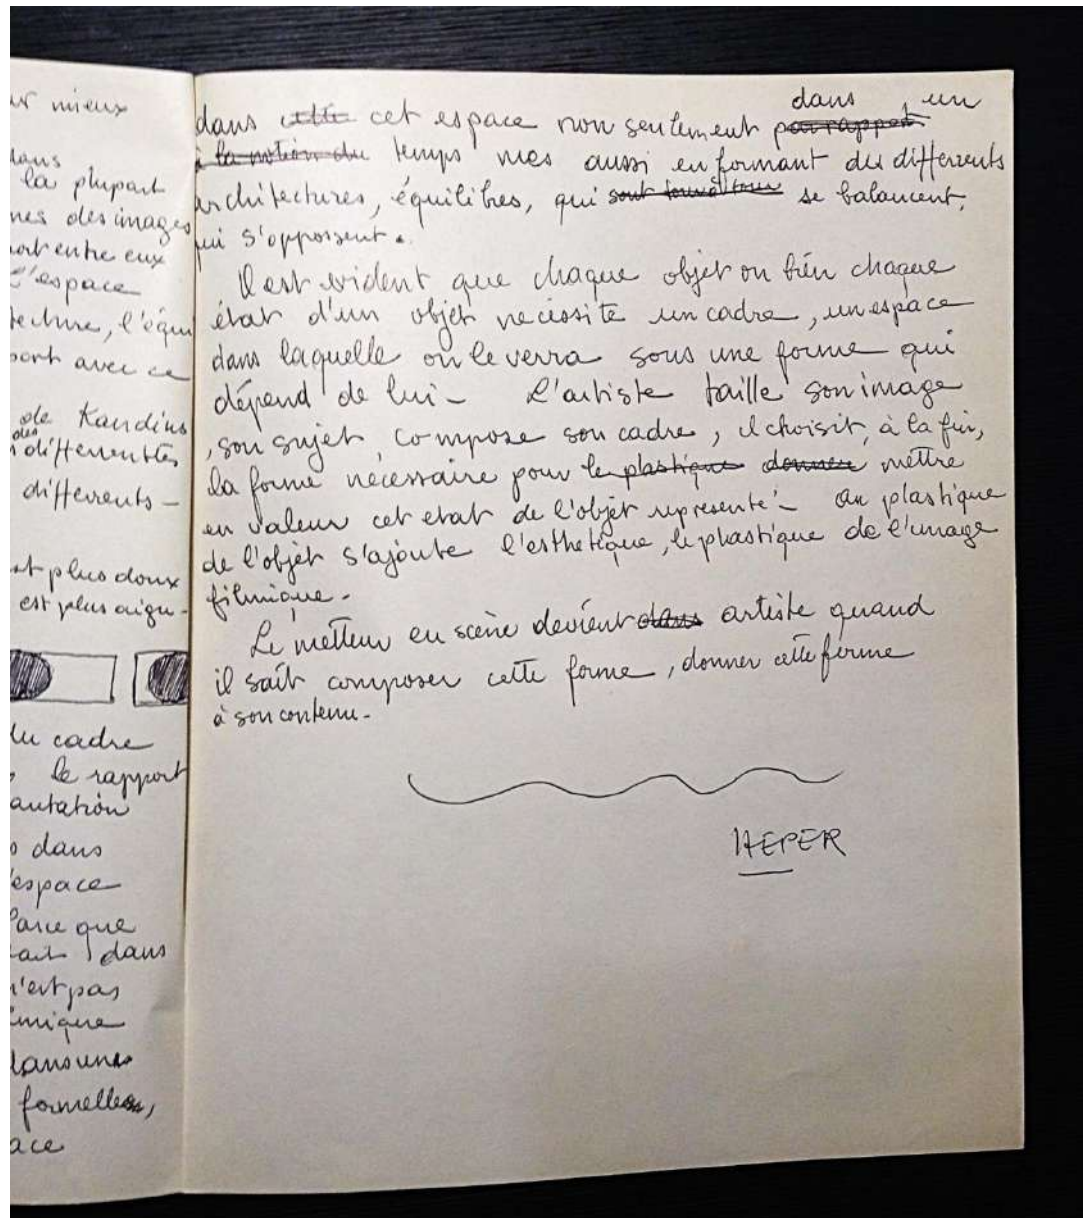 ur mieux
dans
la plupart
nes des images
port entre eux
l'espace
tecture, l'équi
port avec ce
de Kandins
des
differentes
differents -
st plus doux
est plus aigu -
du cadre
le rapport
dans
espace
Parce que
dans
n'est pas
mique
dans une
formelles,
ace
dans cette cet espace non seulement par rapport dans un
à la notion du temps mes aussi en formant des differents
architectures, équilibres, qui sont tour à tour se balancent,
qui s'oppossent.
Il est evident que chaque objet ou bien chaque
état d'un objet necessite un cadre, un espace
dans laquelle on le verra sous une forme qui
dépend de lui - L'artiste taille son image
, son sujet, compose son cadre, il choisit, à la fin,
la forme nécessaire pour le plastique donner mettre
en valeur cet etat de l'objet représenté - au plastique
de l'objet s'ajoute l'esthetique, le plastique de l'image
filmique.
Le metteur en scène devient dans artiste quand
il sait composer cette forme, donner cette forme
à son contenu -
HEPER